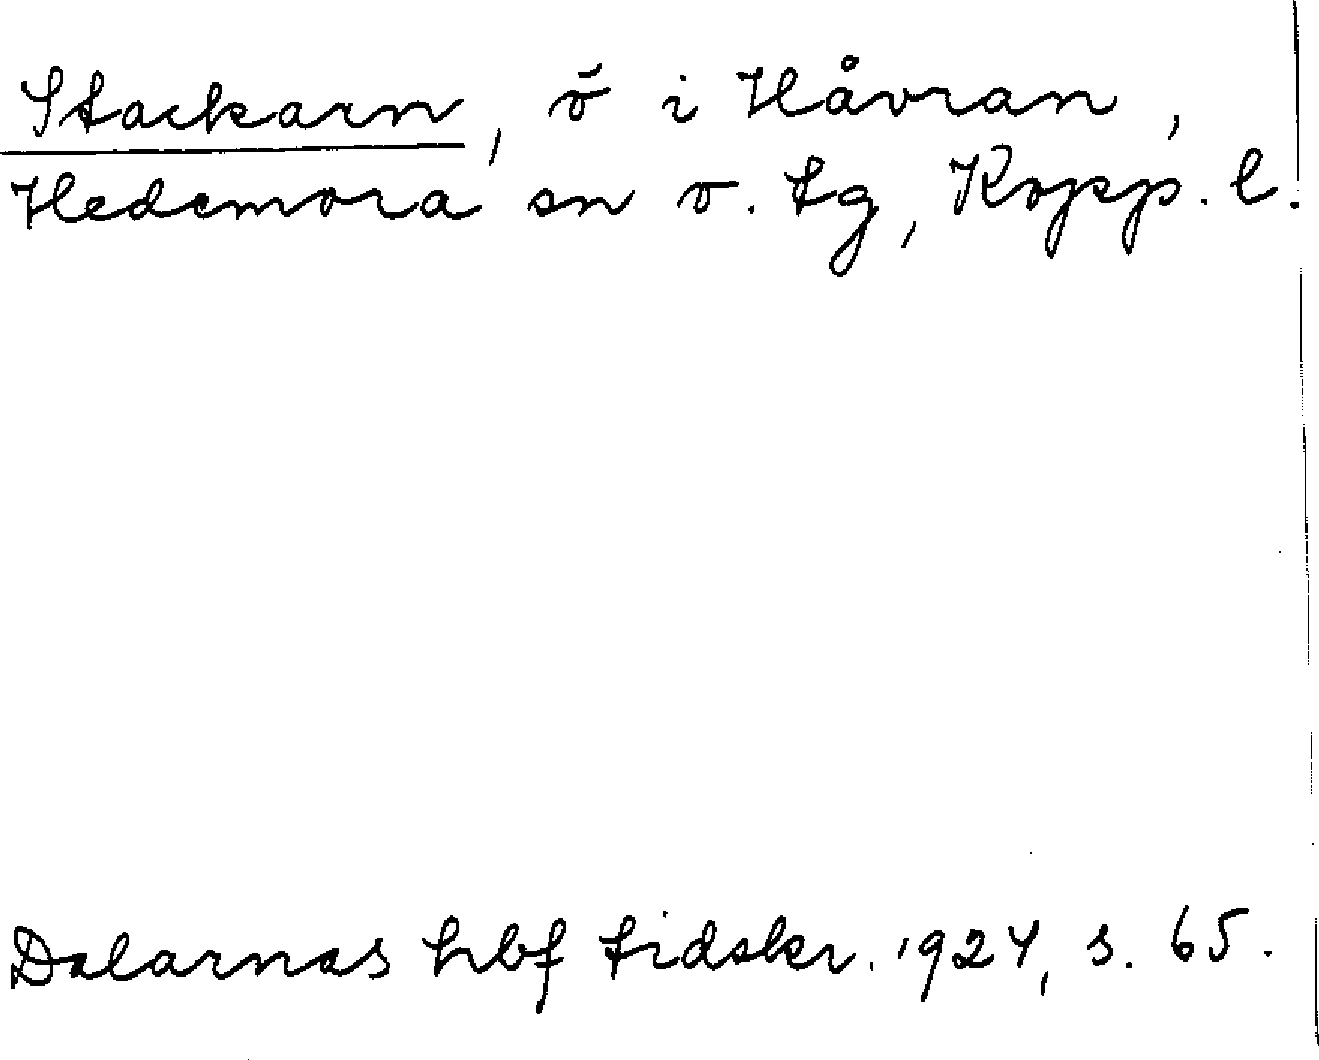 Stackarn, ö i Håvran,
Hedemora sn o. tg, Kopp. l.
Dalarnas hbf tidskr. 1924, s. 65.